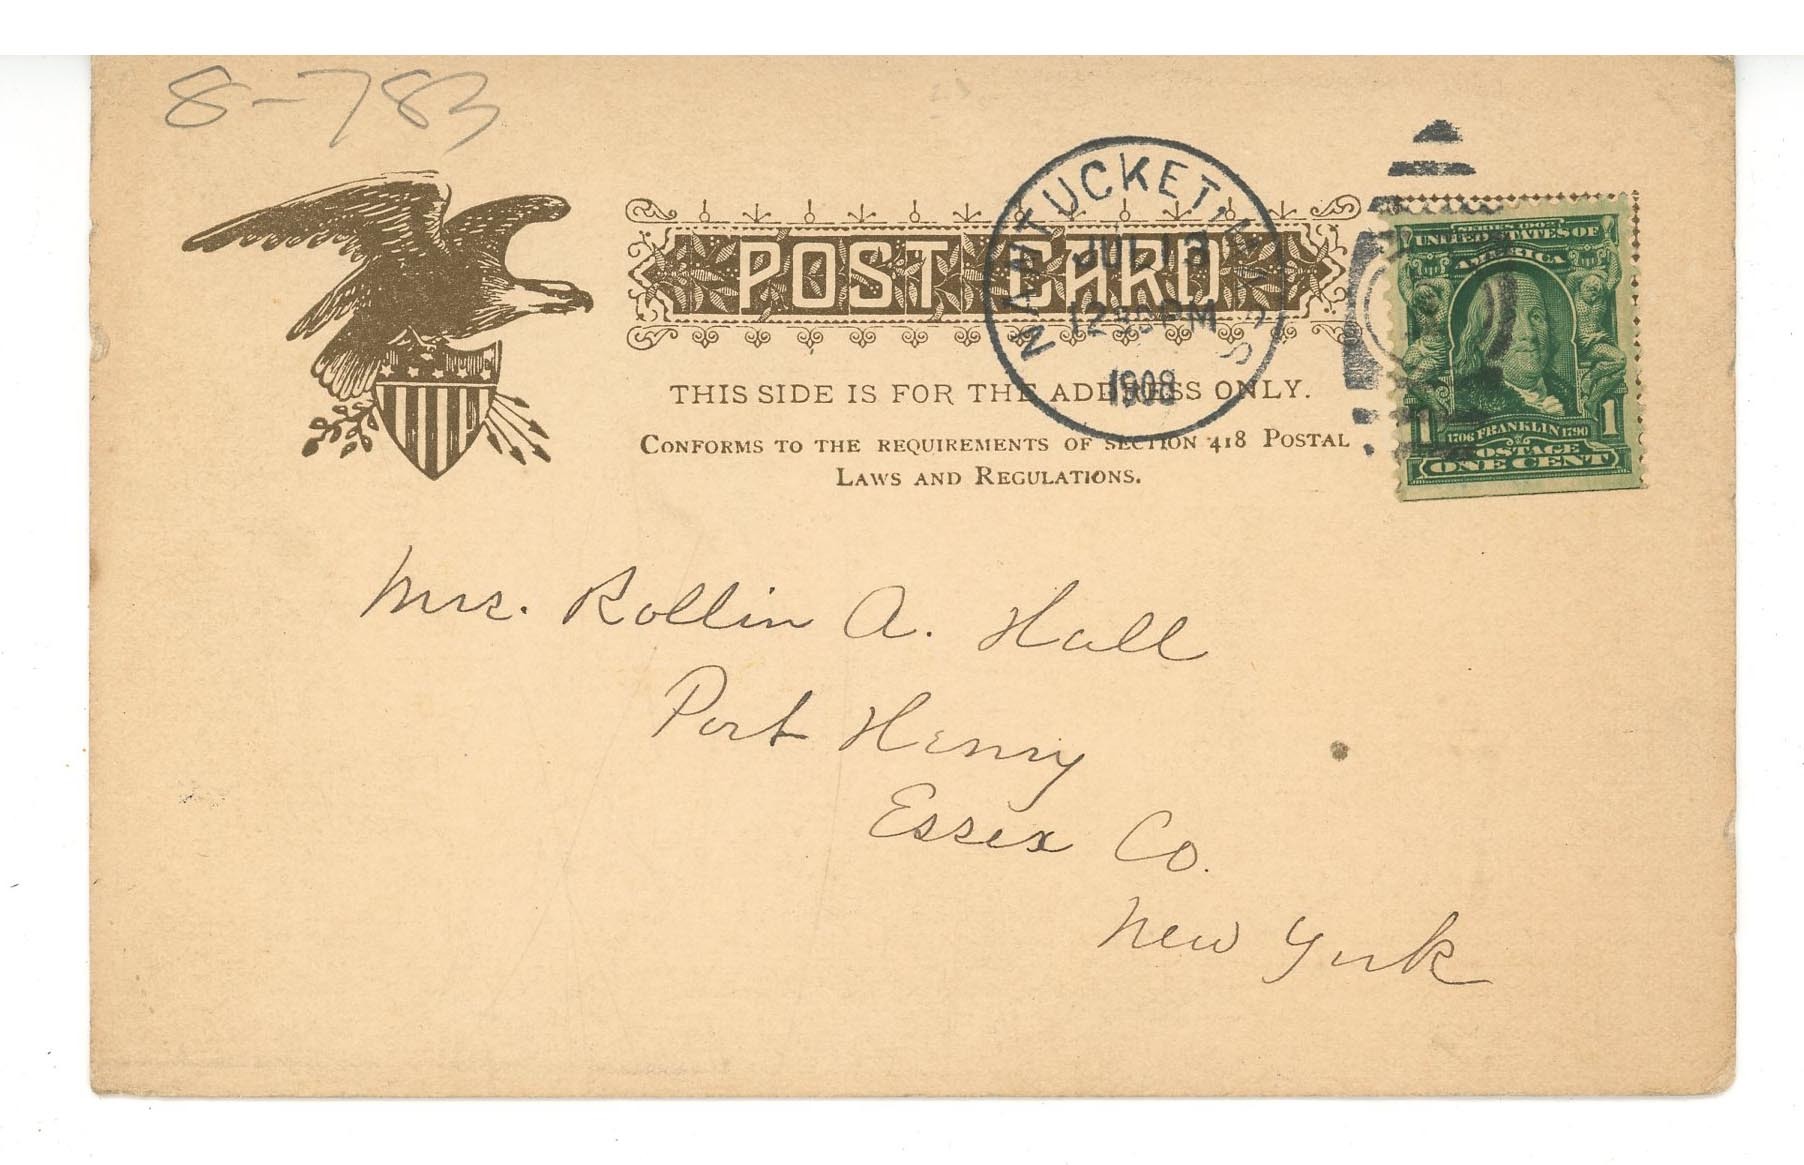 8-783
POST CARD
NANTUCKET, MASS.
JUL 13
12 30 PM
1908
THIS SIDE IS FOR THE ADDRESS ONLY.
CONFORMS TO THE REQUIREMENTS OF SECTION 418 POSTAL
LAWS AND REGULATIONS.
SERIES 1902
UNITED STATES OF
AMERICA
1706 FRANKLIN 1790
1 1
POSTAGE
ONE CENT
Mrs. Rollin A. Hall
Port Henry
Essex Co.
New York